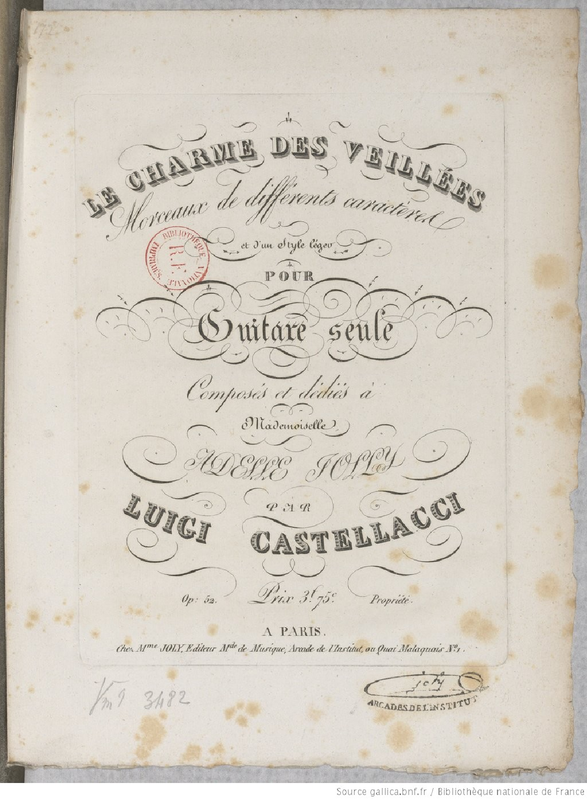 LE CHARME DES VEILLÉES
Morceaux de différents caractères
et d'un Style léger
POUR
Guitare seule
Composés et dédiés à
Mademoiselle
ADELLE JOLLY
PAR
LUIGI CASTELLACCI
Op: 52. Prix 3f 75c Propriété.
A PARIS.
Chez Mme JOLY, Editeur Mde de Musique, Arcade de l'Institut, au Quai Malaquais No 1.
BIBLIOTHÈQUE NATIONALE
R.F.
Joly
ARCADES DE L'INSTITUT
Vm9 3482
Source gallica.bnf.fr / Bibliothèque nationale de France